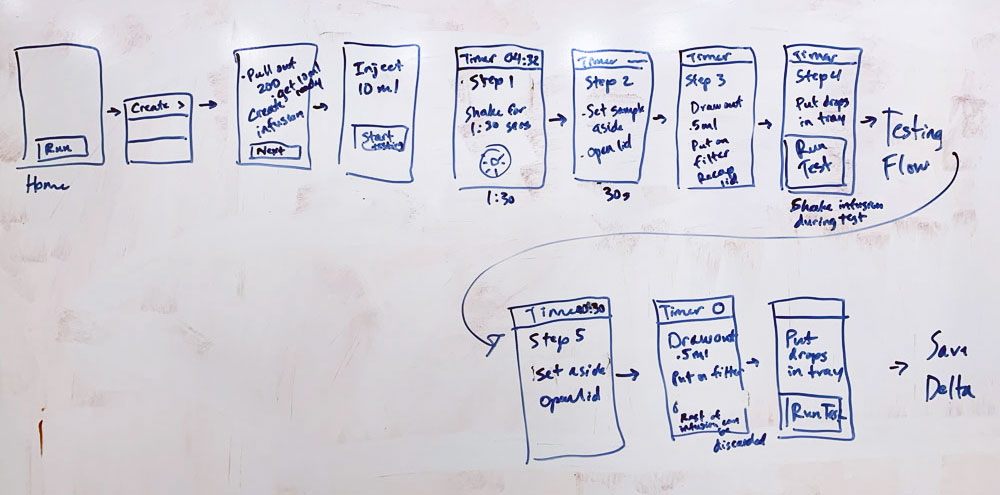 Run
Home
Create >
• Pull out
200
• get 10 ml
Create ready
infusion
Next
Inject
10 ml
Start
Timer 04:32
• Step 1
Shake for
1:30 secs
1:30
Timer —
Step 2
• Set sample
aside
• Open lid
30s
Timer
Step 3
Draw out
.5ml
Put on
filter
Recap
lid
Timer
Step 4
Put drops
in tray
Run
Test
Shake infusion
during test
Testing
Flow
Timer 0:30
Step 5
Set aside
Open lid
Timer 0
Draw out
.5ml
Put on filter
Rest of
infusion can
be
discarded
Put
drops
in tray
Run Test
Save
Delta